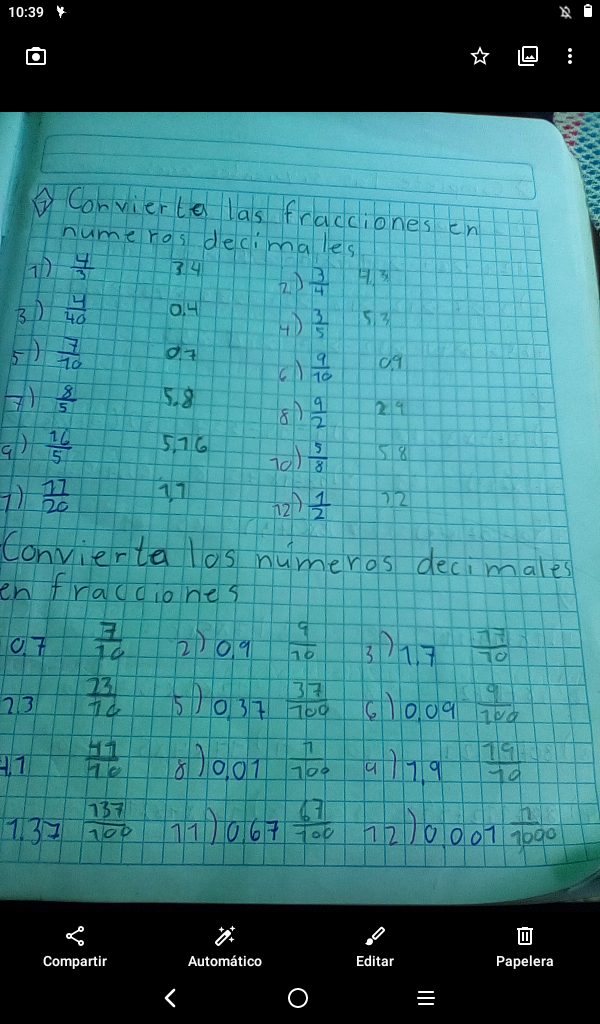 10:39
1 Convierta las fracciones en
numeros decimales
1) 4/3 3,4 2) 3/4 4,3
3) 4/40 0,4 4) 3/5 5,3
5) 7/10 0,7 6) 9/10 0,9
7) 8/5 5,8 8) 9/2 2,9
9) 16/5 5,16 10) 5/8 5,8
1) 11/20 1,1 12) 1/2 1,2
Convierta los números decimales
en fracciones
0,7 7/10 2) 0,9 9/10 3) 1,7 17/10
2,3 23/10 5) 0,37 37/100 6) 0,09 9/100
4,1 41/10 8) 0,01 1/100 9) 1,9 19/10
1,37 137/100 11) 0,67 67/100 12) 0,001 1/1000
Compartir Automático Editar Papelera